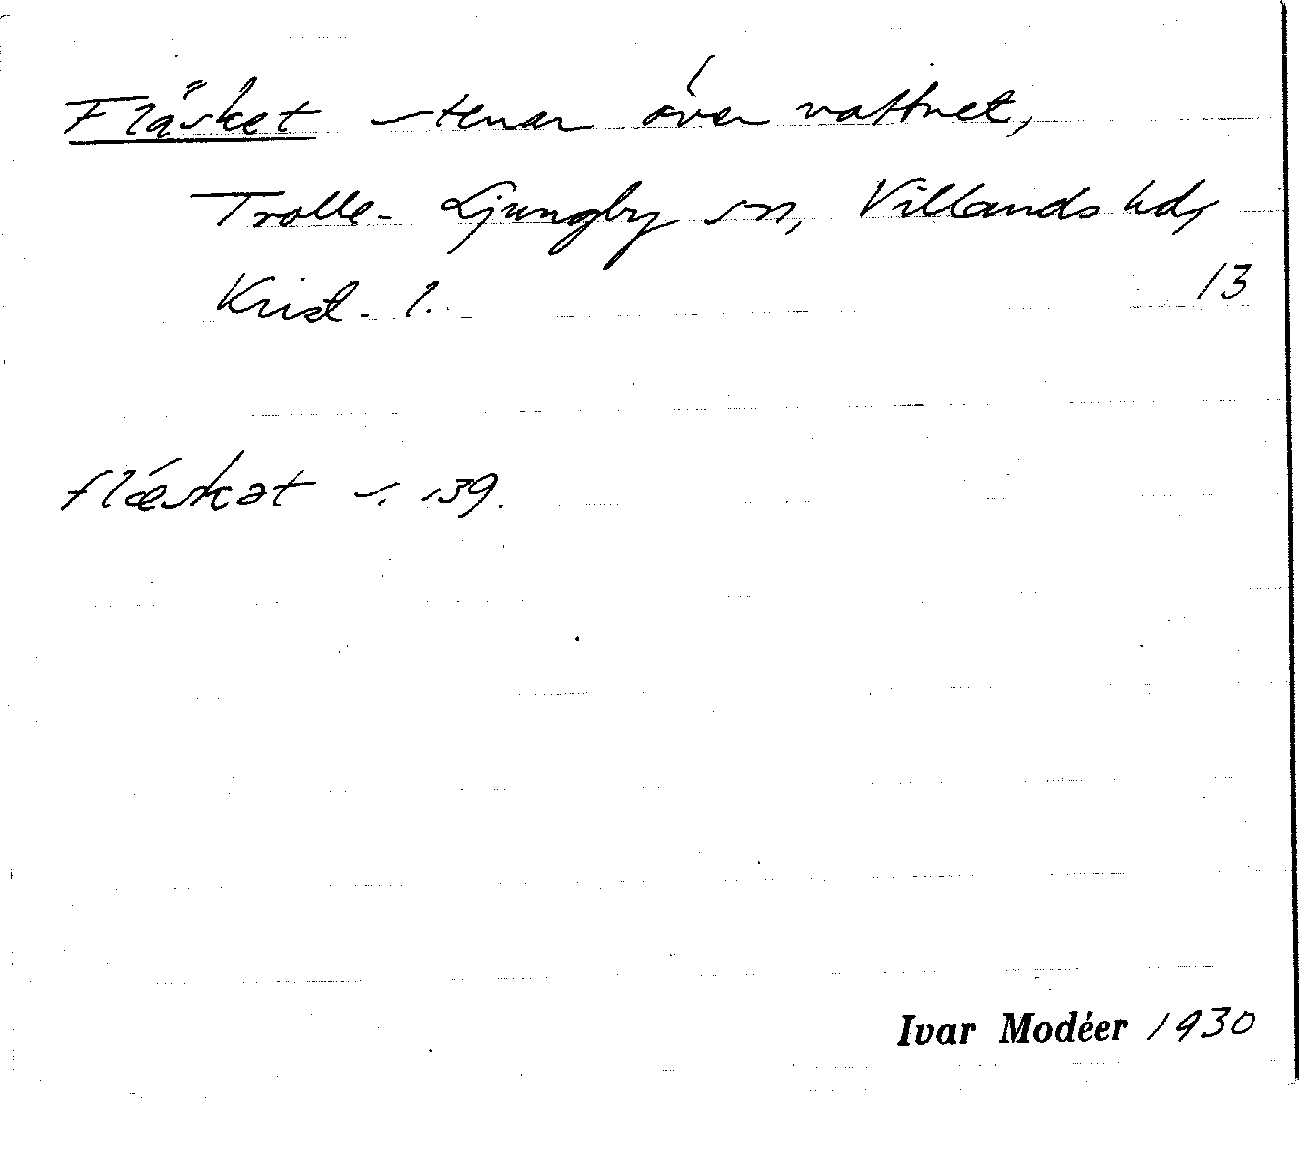 Fläsket stenar över vattnet,
Trolle-Ljungby sn, Villands hd,
Krist. l.
13
flæskət s. 39.
Ivar Modéer 1930